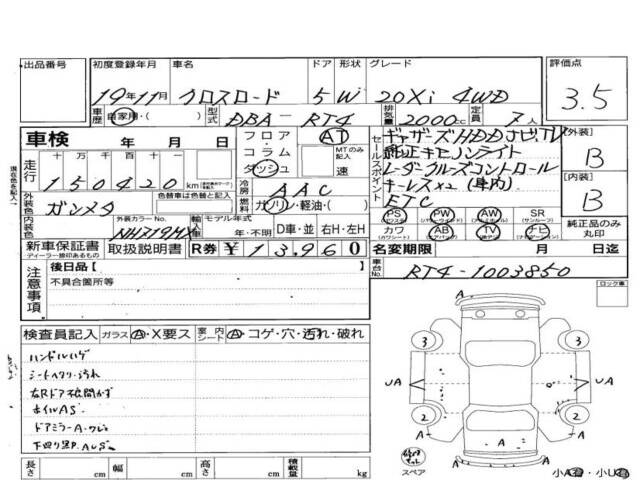 出品番号
初度登録年月 車名 ドア 形状 グレード 評価点
19年11月 クロスロード 5 W 20Xi 4WD 3.5
車歴 自家用・( ) 型式 DBA-RT4 排気量 2000cc 定員 7人
車検 年 月 日
フロア・コラム ダッシュ AT MTのみ記入 速
セールスポイント
ギャザーズHDDナビ,TV
純正キセノンライト
レーダークルーズコントロール
キーレス×2(車内)
ETC
[外装] B
[内装] B
走行 十万 万 千 百 十 一
150420 km
冷房 AAC
燃料 ガソリン・軽油・( )
外装色 ガンメタ 色替車は色替と記入
内装色 外装カラーNo. NH719MX
輸入車 モデル年式 年・不明 D車・並 右H・左H
PS (パワステ) PW (パワーウィンド) AW (アルミ) SR (サンルーフ)
カワ (カワシート) AB (エアバッグ) TV (テレビ) ナビ (ナビゲーション)
純正品のみ丸印
新車保証書 ディーラー捺印あるもの 取扱説明書 R券 ¥13960
名変期限 月 日迄
車台No. RT4-1003850
注意事項 後日品[ ]
不具合箇所等
ロック車
検査員記入 ガラス A・X要ス 室内シート A・コゲ・穴・汚れ・破れ
ハンドルハゲ
シートヘタリ・汚れ
右Rドア不開かず
ホイルAS
ドアミラーA・ワレ
下回りサビ, AUS
A
3 3
UA UA
2 2
A A
A A
スペア
小A・小U
長さ cm 幅 cm 高さ cm 積載量 kg